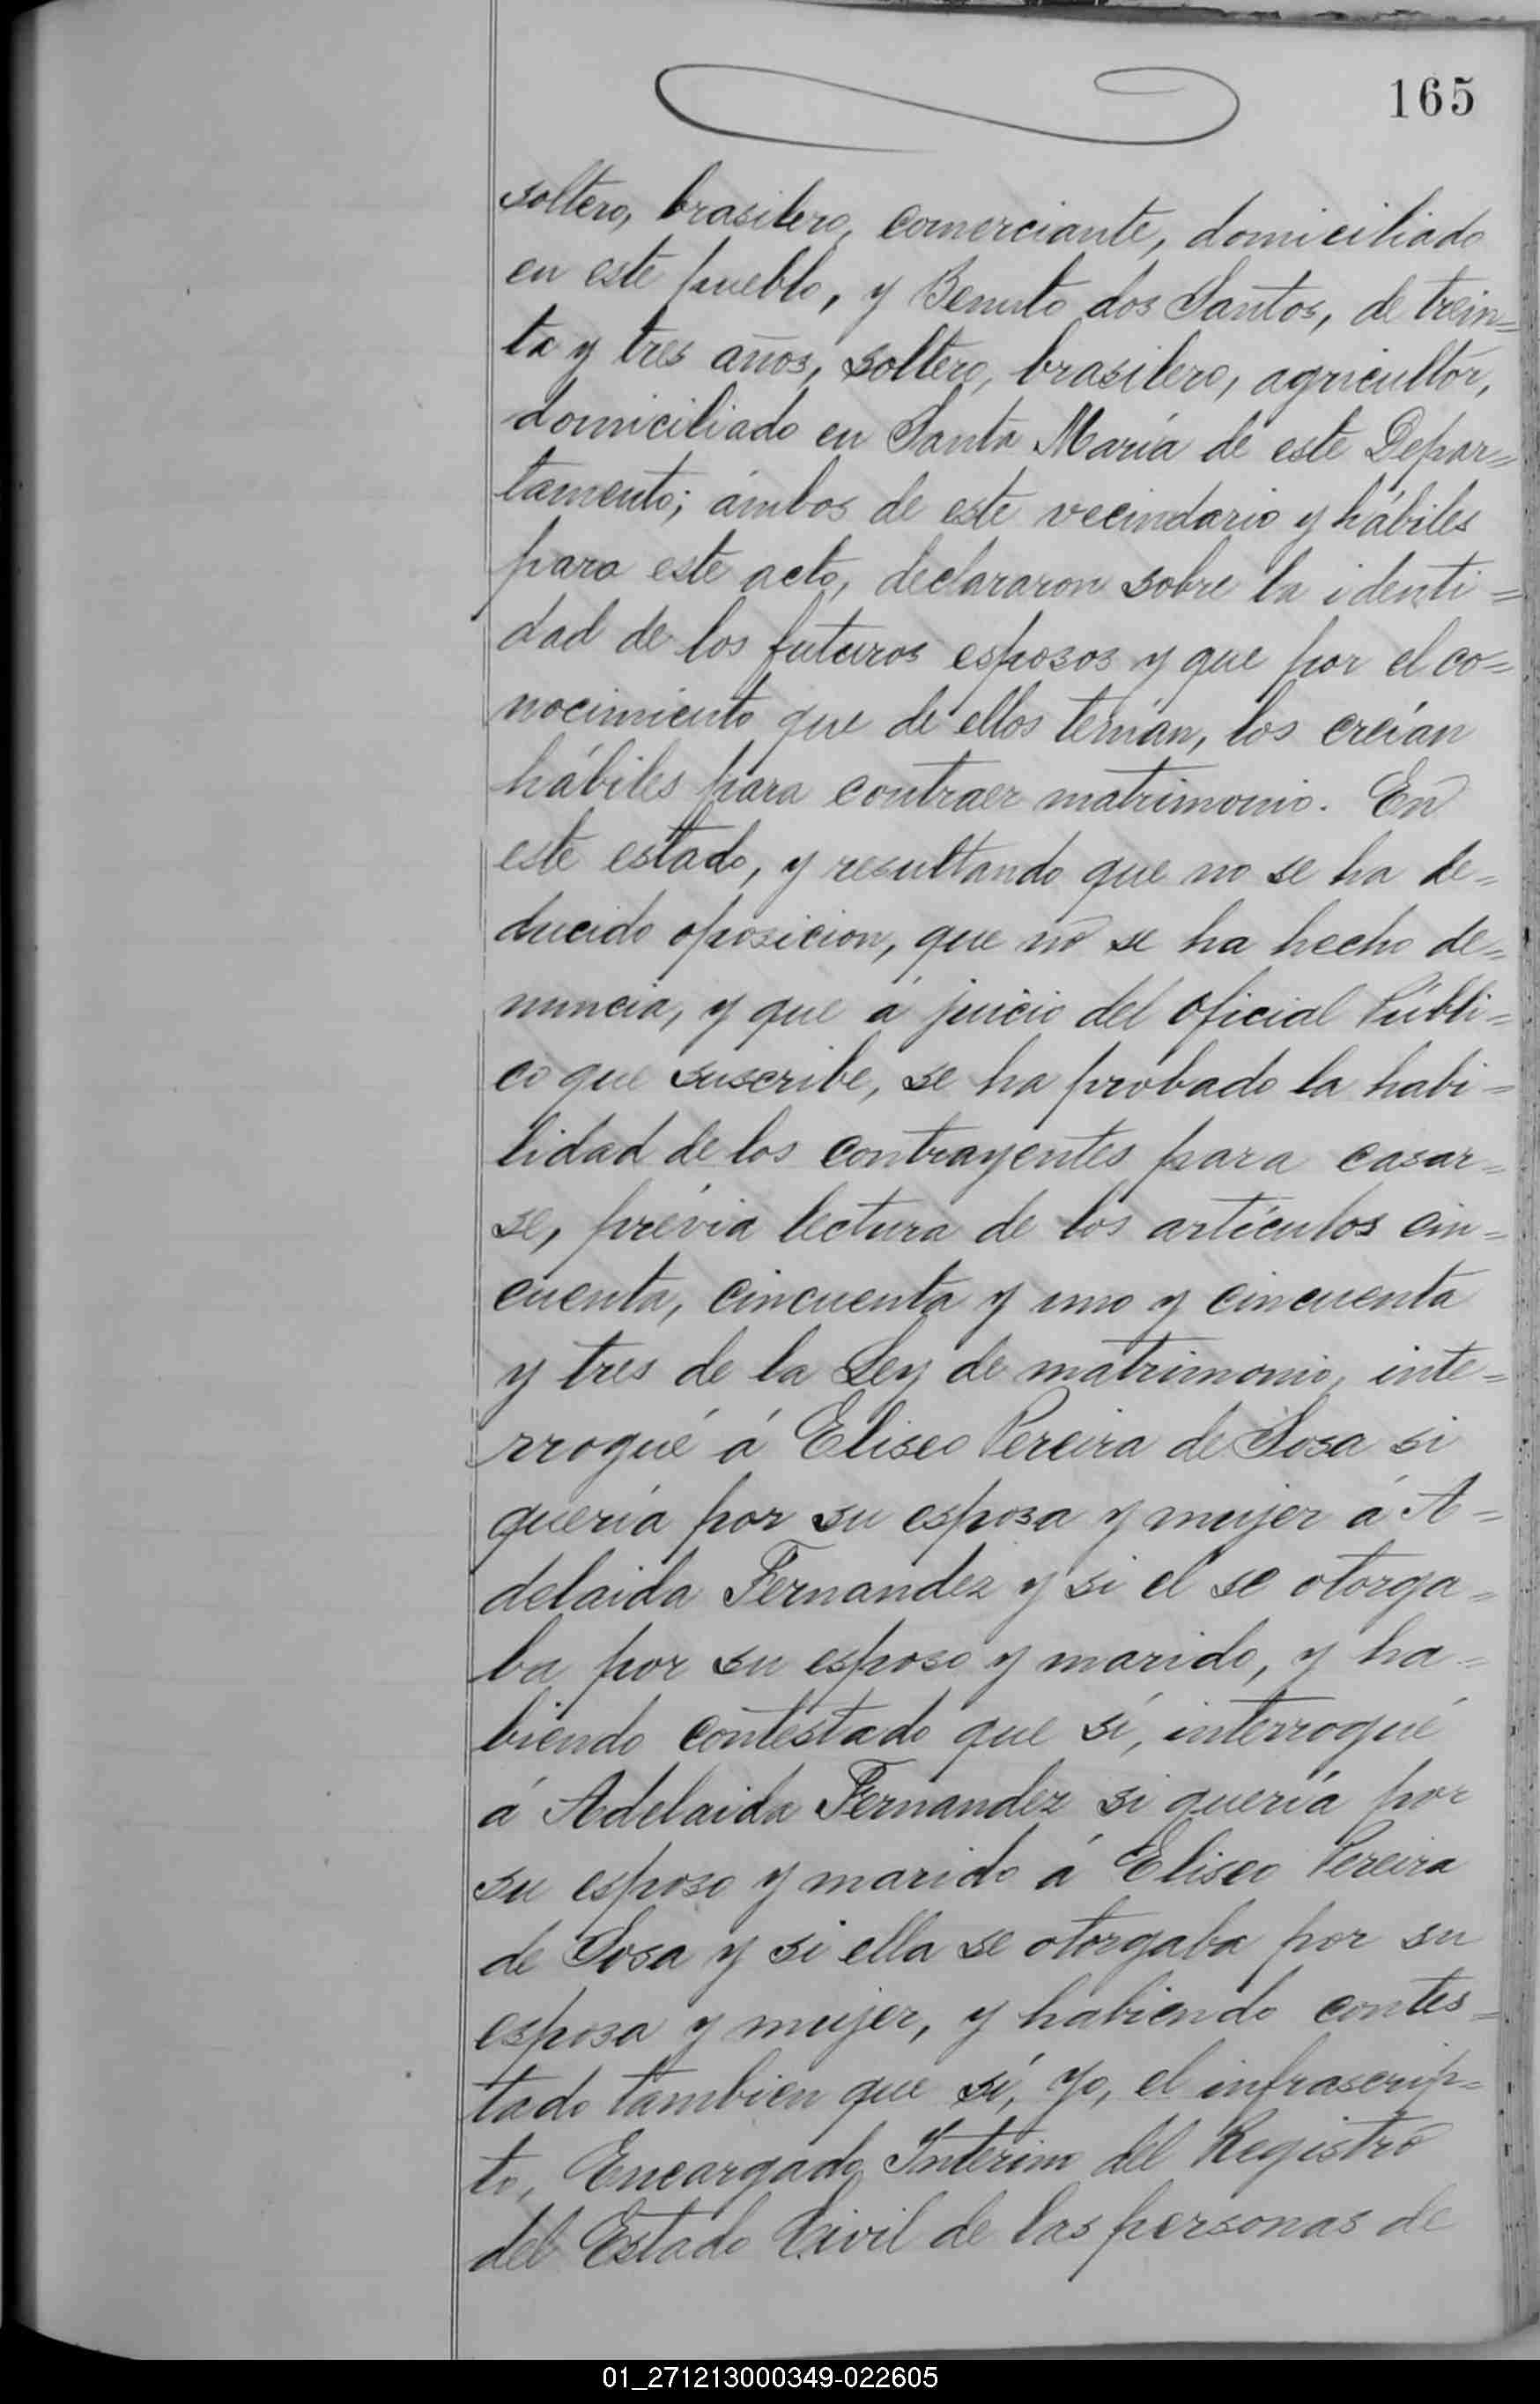 165
soltero, brasilero, comerciante, domiciliado
en este pueblo, y Benuto dos Santos, de trein=
ta y tres años, soltero, brasilero, agricultor,
domiciliado en Santa María de este Depar=
tamento; ámbos de este vecindario y hábiles
para este acto, declararon sobre la identi=
dad de los futuros esposos y que por el co=
nocimiento que de ellos tenían, los creían
hábiles para contraer matrimonio. En
este estado, y resultando que no se ha de=
ducido oposicion, que no se ha hecho de=
nuncia, y que á juicio del Oficial Públi=
co que suscribe, se ha probado la habi=
lidad de los contrayentes para casar=
se, prévia lectura de los artículos cin=
cuenta, cincuenta y uno y cincuenta
y tres de la Ley de matrimonio, inte=
rrogué á Eliseo Pereira de Sosa si
quería por su esposa y mujer á A=
delaida Fernandez y si el se otorga=
ba por su esposo y marido, y ha=
biendo contestado que sí, interrogué
á Adelaida Fernandez si quería por
su esposo y marido á Eliseo Pereira
de Sosa y si ella se otorgaba por su
esposa y mujer, y habiendo contes=
tado tambien que sí, Yo, el infrascrip=
to, Encargado Interino del Registro
del Estado Civil de las personas de
01_271213000349-022605